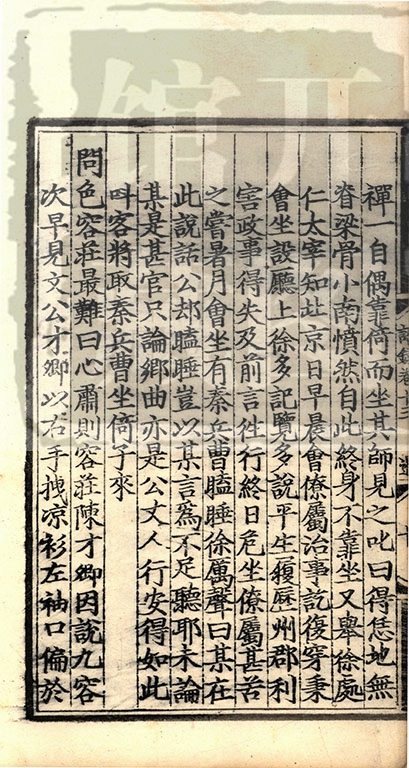 禪一日偶靠倚而坐其師見之叱曰得恁地無
脊梁骨小南憤然自此終身不靠坐又舉徐處
仁太宰知北京日早晨會僚屬治事訖復穿秉
會坐設廳上徐多記覽多說平生履歷州郡利
害政事得失及前言往行終日危坐僚屬甚苦
之嘗暑月會坐有秦兵曹瞌睡徐厲聲曰某在
此說話公却瞌睡豈以某言爲不足聽耶未論
某是甚官只論鄉曲亦是公丈人行安得如此
呌客將取秦兵曹坐倚子來
問色容莊最難曰心肅則容莊陳才卿因說九容
次早見文公才卿以右手拽凉衫左袖口偏於